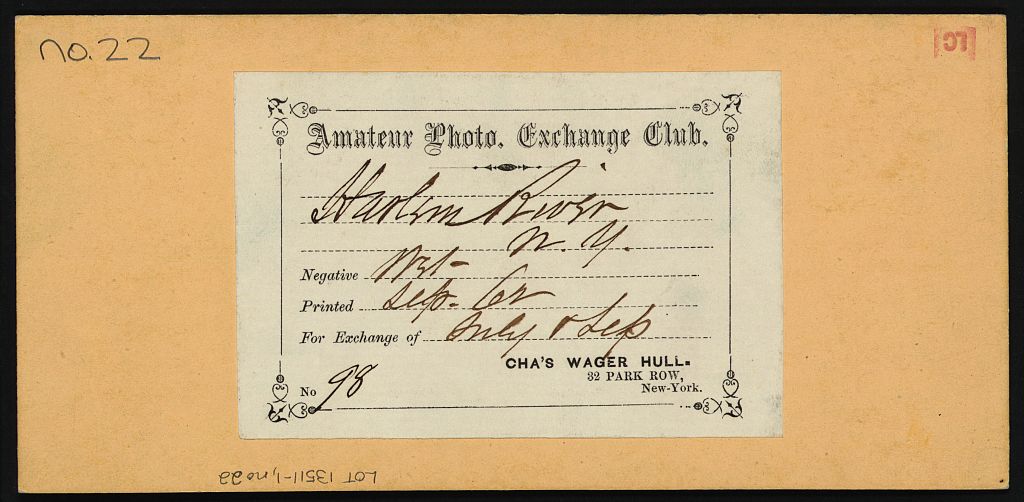 no. 22
LC
Amateur Photo. Exchange Club.
Harlem River
N. Y.
Negative Wet
Printed Sep. 62
For Exchange of July & Sep
CHA'S WAGER HULL.
32 PARK ROW,
New-York.
No 98
LOT 13511-1, no 22